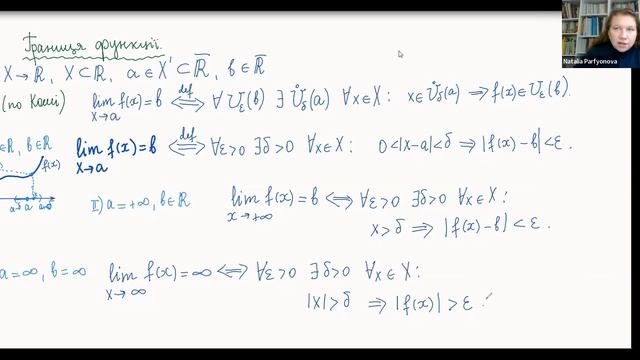 Границя функції.
X→ℝ, X⊂ℝ, a∈X'⊂ℝ̅, b∈ℝ̅
(по Коші) lim_{x→a} f(x)=b ⟺(def) ∀ U_ε(b) ∃ Ů_δ(a) ∀x∈X: x∈Ů_δ(a) ⟹ f(x)∈U_ε(b).
∈ℝ, b∈ℝ lim_{x→a} f(x)=b ⟺(def) ∀ε>0 ∃δ>0 ∀x∈X: 0<|x-a|<δ ⟹ |f(x)-b|<ε.
f(x)
II) a=+∞, b∈ℝ lim_{x→+∞} f(x)=b ⟺ ∀ε>0 ∃δ>0 ∀x∈X:
x>δ ⟹ |f(x)-b|<ε.
a=∞, b=∞ lim_{x→∞} f(x)=∞ ⟺ ∀ε>0 ∃δ>0 ∀x∈X:
|x|>δ ⟹ |f(x)|>ε
Natalia Parfyonova